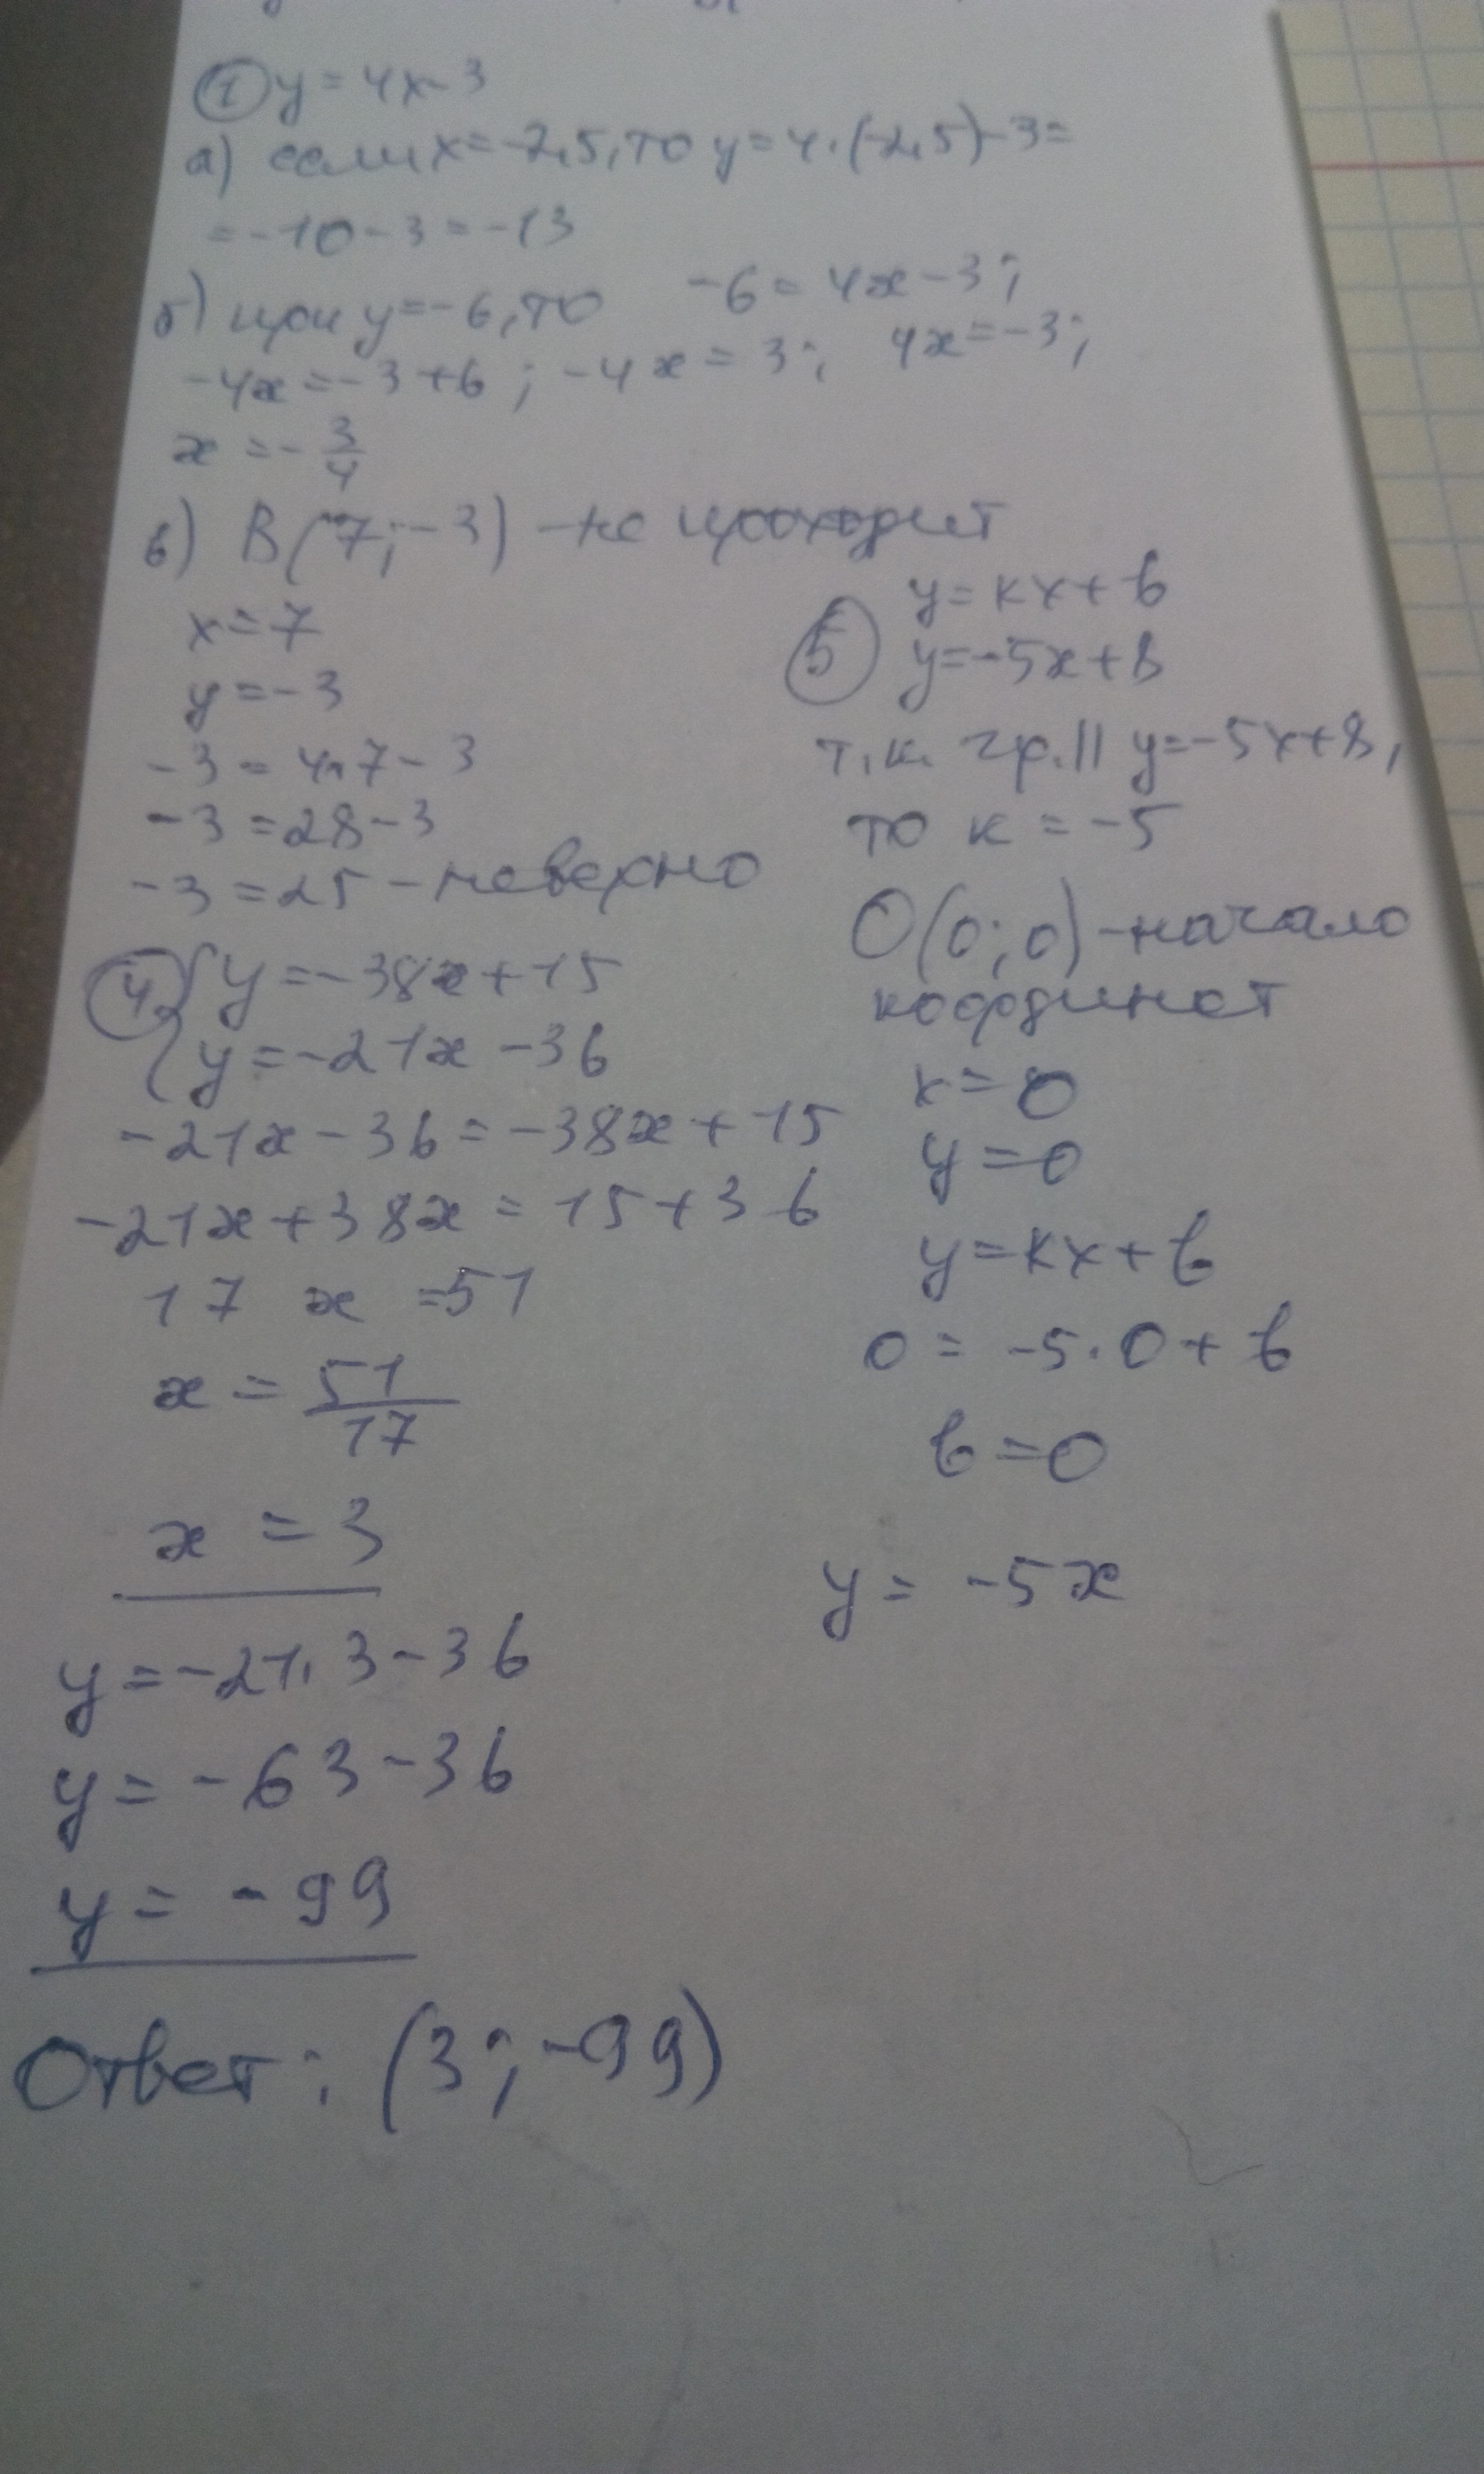 ① y = 4x - 3
а) если x = -2,5, то y = 4·(-2,5) - 3 =
= -10 - 3 = -13
б) при y = -6, то -6 = 4x - 3;
-4x = -3 + 6; -4x = 3; 4x = -3;
x = - 3/4
в) B(7; -3) - не проходит
x = 7
y = -3
-3 = 4·7 - 3
-3 = 28 - 3
-3 = 25 - неверно
④ { y = -38x + 15
y = -21x - 36
-21x - 36 = -38x + 15
-21x + 38x = 15 + 36
17 x = 51
x = 51/17
x = 3
y = -21·3 - 36
y = -63 - 36
y = -99
Ответ: (3; -99)
⑤ y = kx + b
y = -5x + 8
т.к. гр. || y = -5x + 8,
то k = -5
O(0; 0) - начало
координат
x = 0
y = 0
y = kx + b
0 = -5·0 + b
b = 0
y = -5x